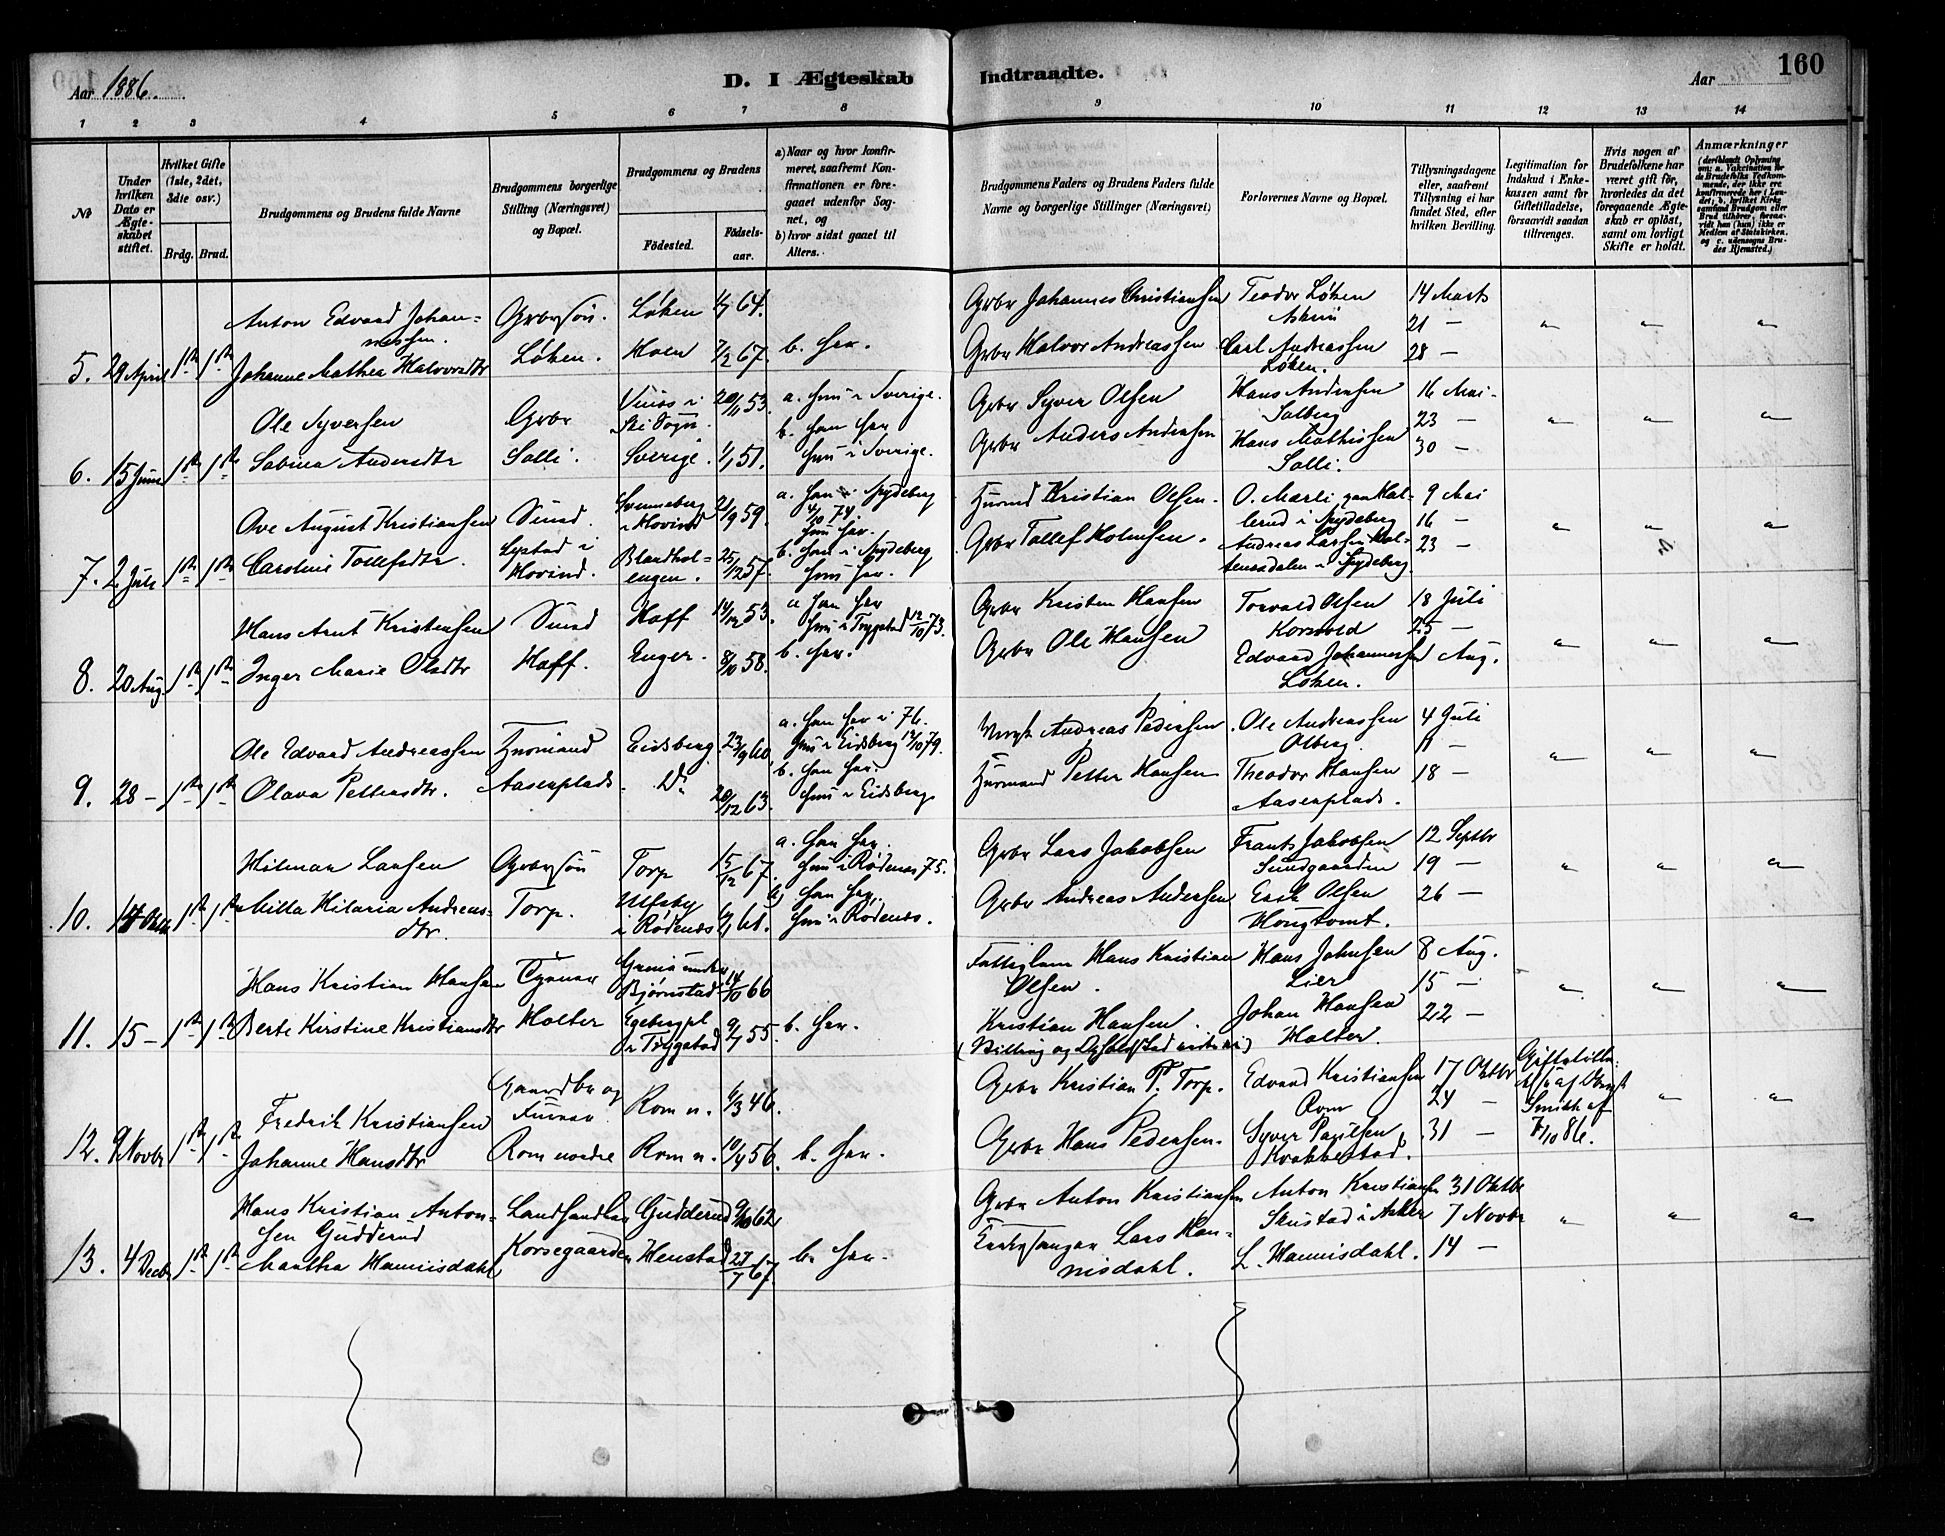 160
Aar 1886.
D. I Ægteskab Indtraadte.
Aar
1 2 3 4 5 6 7 8 9 10 11 12 13 14
№
Under hvilken Dato er Ægteskabet stiftet.
Hvilket Gifte (1ste, 2det, 3die osv.)
Brdg. Brud.
Brudgommens og Brudens fulde Navne
Brudgommens borgerlige Stilling (Næringsvei) og Bopæl.
Brudgommens og Brudens
Födested.
Födselsaar.
a) Naar og hvor konfirmeret, saafremt Konfirmationen er foregaaet udenfor Sognet, og
b) hvor sidst gaaet til Alters.
Brudgommens Faders og Brudens Faders fulde Navne og borgerlige Stillinger (Næringsvei)
Forlovernes Navne og Bopæl.
Tillysningsdagene eller, saafremt Tillysning ei har fundet Sted, efter hvilken Bevilling.
Legitimation for Indskud i Enkekassen samt for Giftetilladelse, forsaavidt saadan tiltrænges.
Hvis nogen af Brudefolkene har været gift før, hvorledes da det foregaaende Ægteskab er oplöst, samt om lovligt Skifte er holdt.
Anmærkninger
5. 29 April 1ste 1ste
Anton Edvard Johannessen.
Johanne Mathea Halvorsdtr
Grbrsön. Løken.
Løken 1/7 64.
Hoen 7/2 67.
b. her.
Grbr Johannes Christiansen
Grbr Halvor Andreassen
Teodor Løken Askim
Carl Andreassen Løken.
14 Marts
21 —
28 —
6. 15 Juni 1ste 1ste
Ole Syversen
Sabina Andersdtr
Grbr Solli.
Ski Sogn. 20/11 53.
Sverige. 1/1 51.
a. hun i Sverige.
b. han her
hun i Sverige.
Grbr Syver Olsen
Grbr Anders Andersen
Hans Andersen Solberg
Hans Mathissen Solli.
16 Mai
23 —
30 —
7. 2 Juli 1ste 1ste
Ove August Kristiansen
Caroline Tollefsdtr.
Sund.
i Hovind.
i Hovind 21/9 59.
25/12 57.
a. han i Spydeberg
4/10 74.
hun her.
b. han i Spydeberg
hun her.
Husmd Kristian Olsen.
Grbr Tollef Holmsen.
i Spydeberg
Andreas Larsen
i Spydeberg.
9 Mai
16 —
23 —
8. 20 Aug. 1ste 1ste
Hans Arnt Kristensen
Inger Marie Olsdtr
Sund Hoff.
Hoff 14/12 53.
Enger. 8/10 58.
a han her
hun i Trygstad 12/10 73.
b. her.
Grbr Kristen Hansen
Grbr Ole Hansen
Torvald Olsen Korsvold
Edvard Johannessen Løken.
18 Juli
25 —
1 Aug.
9. 28 — 1ste 1ste
Ole Edvard Andreassen
Olava Pettersdtr.
Husmand Aasenplads.
Eidsberg 23/9 60.
Do 20/12 63.
a. han her i 76.
hun i Eidsberg 12/10 79.
b. han her.
hun i Eidsberg
Andreas Pedersen
Husmand Petter Hansen
Ole Andreassen Olberg.
Theodor Hansen Aasenplads.
4 Juli
11 —
18 —
10. 14 Oktbr 1ste 1ste
Hilmar Larsen
Milla Hilaria Andreasdtr.
Grbrsön Torp.
Torp 15/12 67.
Ulfsby i Rødenæs 61.
a. han her.
hun i Rødenæs 75.
b) han her.
hun i Rødenæs.
Grbr Lars Jakobsen
Grbr Andreas Andersen
Frants Jakobsen Sundgaarden
Erik Olsen Hougtomt.
12 Septbr
19 —
26 —
11. 15 — 1ste 1ste
Hans Kristian Hansen
Berte Kirstine Kristiansdtr
Tjener Holter
under Bjørnstad 14/10 66
Egebergpl i Trygstad 9/7 55.
b. her.
Fattiglem Hans Kristian Olsen.
Kristian Hansen.
(Stilling og Opholdssted
Hans Johnsen Lier
Johan Hansen Holter.
8 Aug.
15 —
22 —
12. 9 Novbr 1ste 1ste
Fredrik Kristiansen
Johanne Hansdtr
Gaardbr og
Rom nordre
Rom n. 6/3 46.
Rom n. 10/4 56.
b. her.
Grbr Kristian P. Torp.
Grbr Hans Pedersen.
Edvard Kristiansen Rom
Syver Paulsen Krabbestad.
17 Oktbr
24 —
31 —
Smith af
/10 86.
13. 4 Decbr 1ste 1ste
Hans Kristian Antonsen Gudderud
Martha Hannisdahl
Landhandler Korsegaarden
Gudderud 9/10 62
Henstad 27/7 67.
b. her.
Grbr Anton Kristiansen
Kirkesanger Lars Hannisdahl.
Anton Kristiansen Skustad i Asker
L. Hannisdahl.
31 Oktbr
7 Novbr
14 —